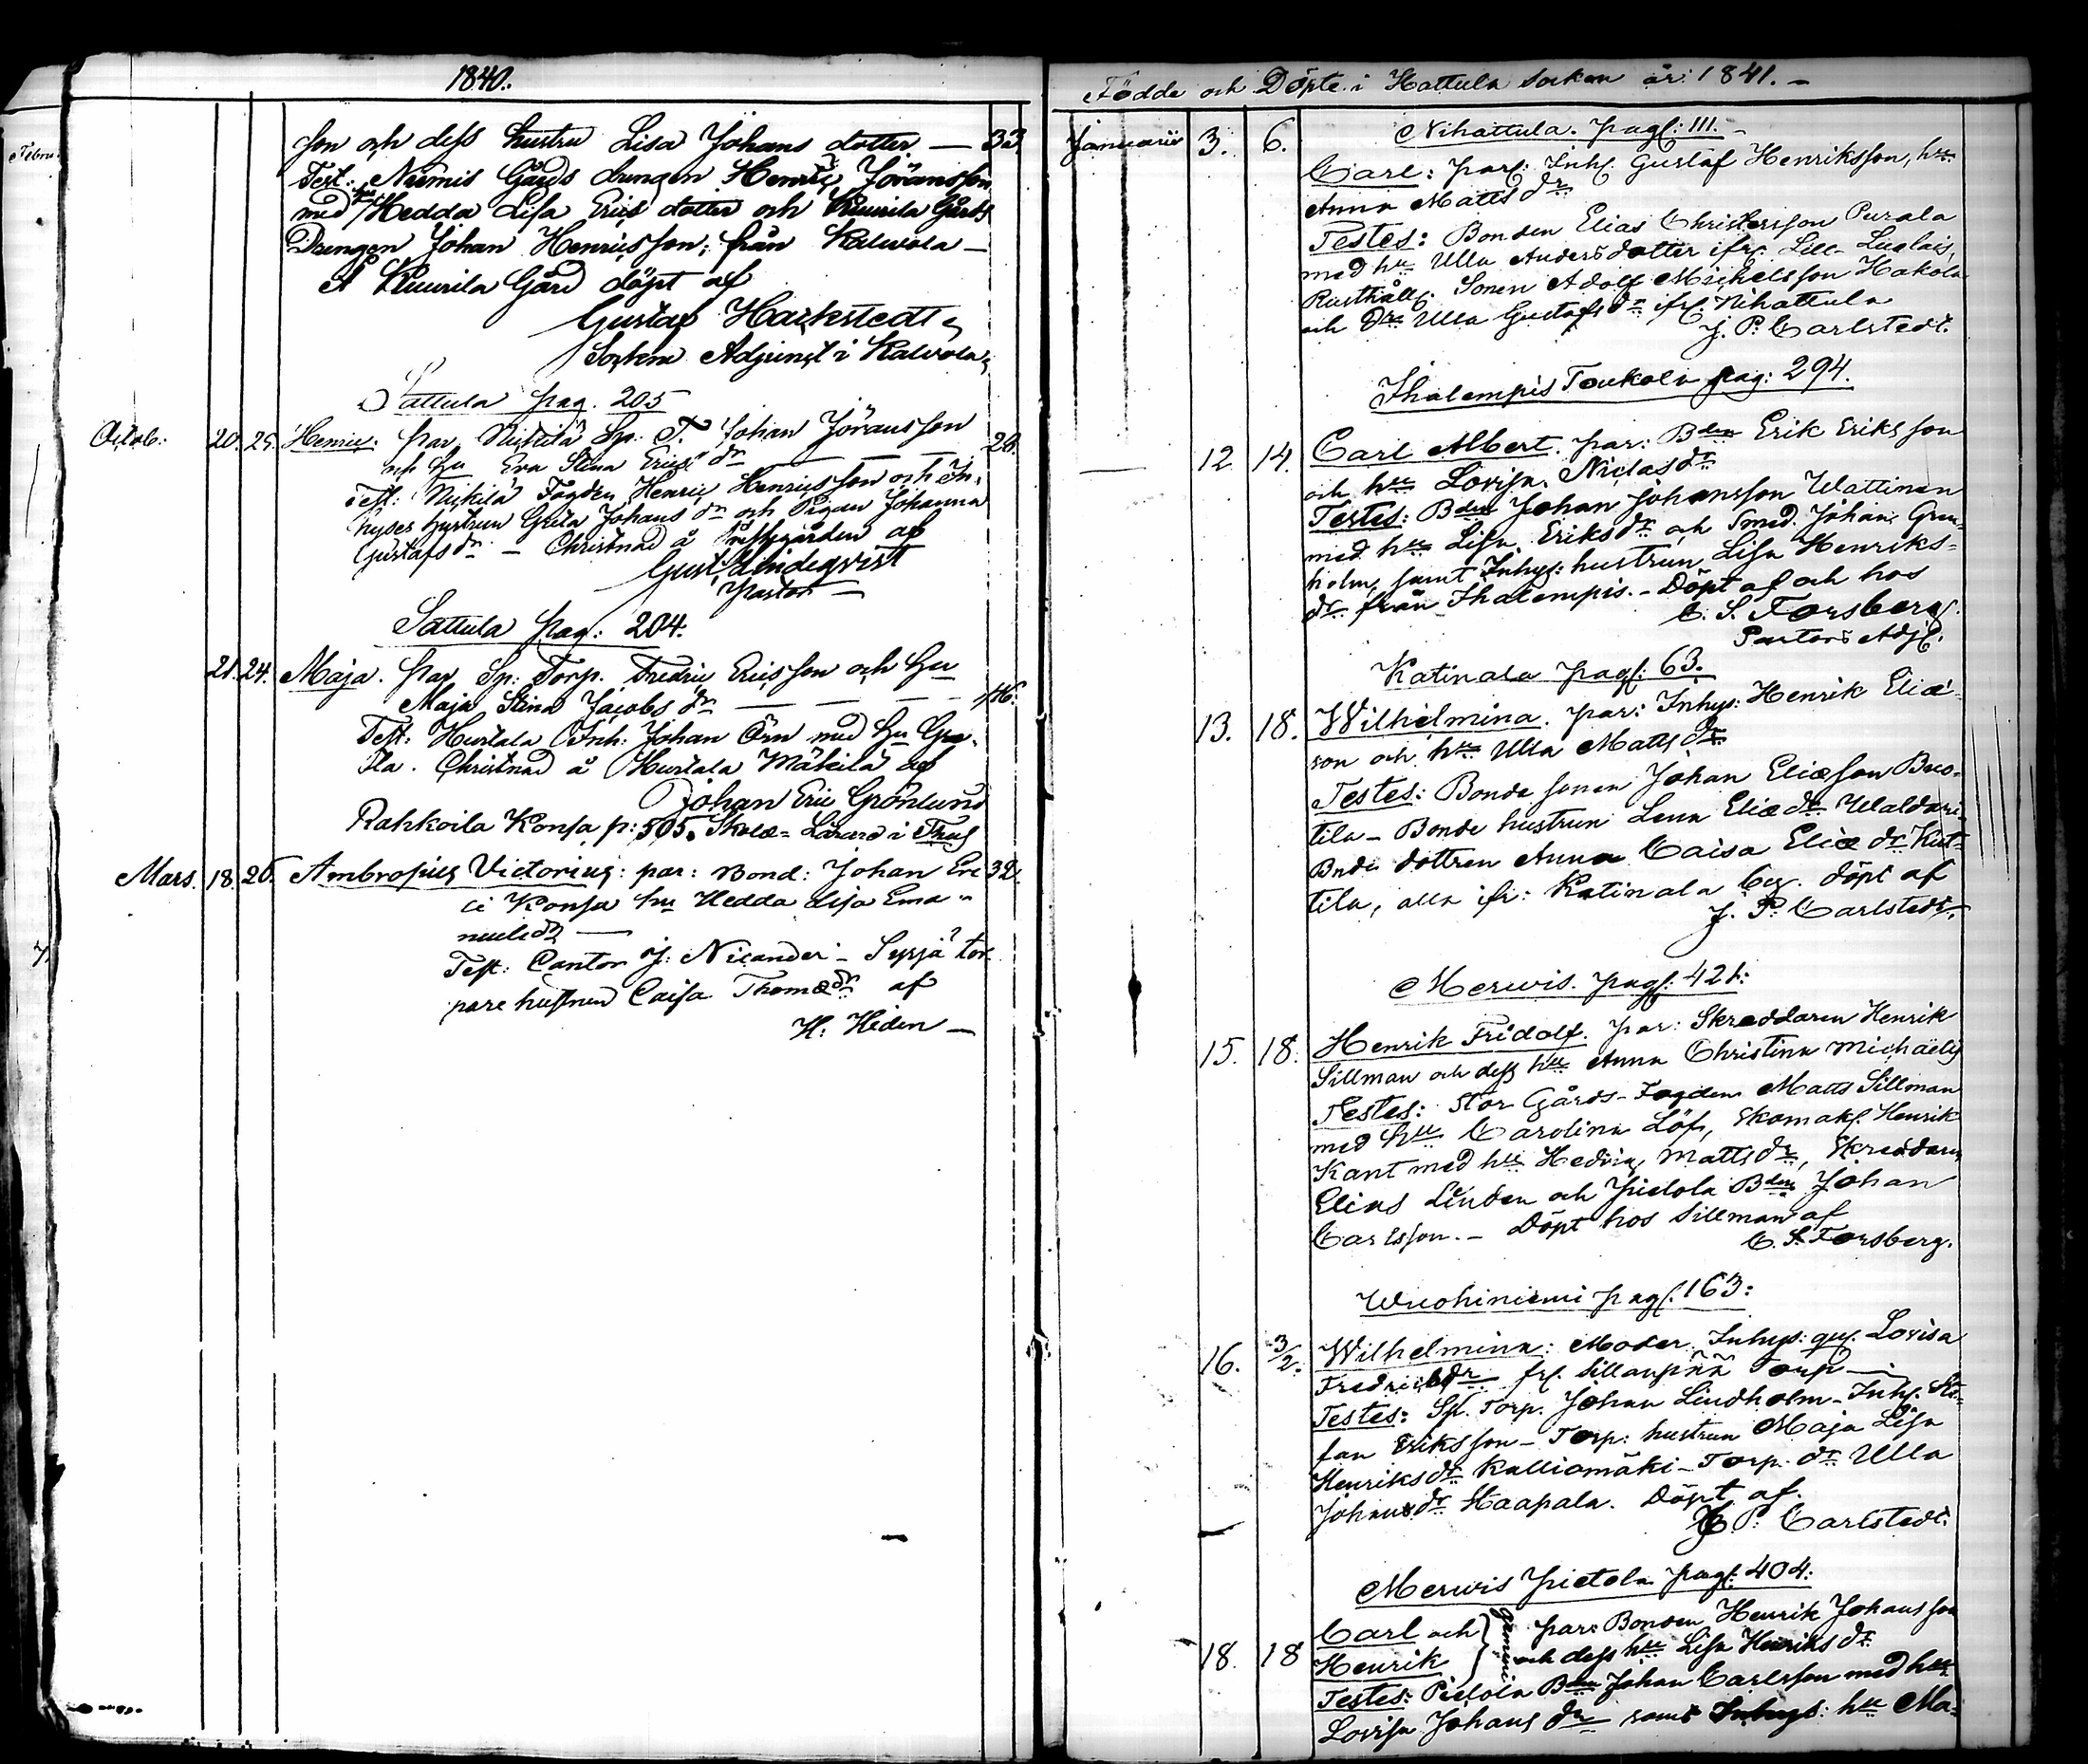 1840.
son och dess hustru Lisa Johans dotter — 33
Test: Niemis Gårds drengen Henric Jöransson
med hu Hedda Lisa Erics dotter och Kuurila Gårds
Drengen Johan Henricsson; från Kalvola —
A Kuurila Gård döpt af
Gustaf Harkstedt
Sockne Adjunct i Kalvola
Sattula pag. 205
Octob: 20. 25. Henric. par. Nickilä Sp. T. Johan Jöransson 28.
och hu Eva Stina Erics dr
Test: Nickilä Fogden Henric Henricsson och In-
hyses hustrun Greta Johans dr och Pigan Johanna
Gustafs dr. — Christnad å Prestgården af
Gust. Lindeqvist
Pastor —
Sattula pag: 204.
21. 24. Maja. par Sp. Torp. Fredric Ericsson och hu
Maja Stina Jacobs dr — — — 46.
Test: Hurtala Inh: Johan Örn med hu Gre-
ta. Christnad å Hurtala Mäkilä af
Johan Eric Grönlund
Rahkoila Konsa p: 505. Skolæ-Lärare i Thus
Mars. 18. 26. Ambrosius Victorius: par: Bond: Johan Eri 32.
ci Konsa hu Hedda Lisa Ema-
nuels dr —
Test: Cantor J: Nicander - Syrjä tor-
pare hustrun Caisa Thomæ dr af
H: Heden —
Födde och Döpte i Hattula Sockn år: 1841. —
Nihattula. pag: 111. —
Januarii 3. 6. Carl: par: Inh. Gustaf Henriksson, hu
Anna Matts dr
Testes: Bonden Elias Christersson Purala
med hu Ulla Anders dotter ifr. Lill Luolais,
Rusthåll. Sonen Adolf Michelsson Hakola
och dr Ulla Gustafs dr ifr. Nihattula
J. P. Carlstedt.
Ihalempis Toukola pag: 294.
12. 14. Carl Albert. par: Bden Erik Eriksson
och hu Lovisa Niclas dr
Testes: Bden Johan Johansson Wattinen
med hu Lisa Eriks dr och Smed. Johan Gran-
holm, samt Inhys: hustrun Lisa Henriks-
dr från Ihalempis. — Döpt af och hos
C. S. Forsberg.
Pastors Adj.
Katinala pag: 63.
13. 18. Wilhelmina. par: Inhys: Henrik Eliæ-
son och hu Ulla Matts dr
Testes: Bonde sonen Johan Eliæson Buo-
tila — Bonde hustrun Lena Eliæ dr Waldari
Bnde dottren Anna Caisa Eliæ dr Kut-
tila, alla ifr: Katinala by. Döpt af
J. P. Carlstedt.
Merwis. pag: 421:
15. 18. Henrik Fridolf. par: Skreddaren Henrik
Sillman och dess hu Anna Christina Michaëls
Testes: Stor Gårds-Fogden Matts Sillman
med hu Carolina Löf, Skomak. Henrik
Kant med hu Hedvig Matts dr, Skreddaren
Elias Linden och Pietola Bden Johan
Carlsson. — Döpt hos Sillman af
C. S. Forsberg.
Wuohiniemi pag: 163:
16. 3/2. Wilhelmina: Moder. Inhys: qv. Lovisa
Fredriks dr fr. Sillanpää Torp —
Testes: Sp. Torp. Johan Lindholm - Inh. Ste-
fan Eriksson — Torp: hustrun Maja Lisa
Henriks dr Kalliomäki - Torp. dr Ulla
Johans dr Haapala. Döpt af.
J. P. Carlstedt.
Merwis Pietola pag: 404:
18. 18 Carl och Henrik } gemini par: Bonden Henrik Johansson
och dess hu Lisa Henriks dr
Testes: Pietola Bden Johan Carlsson med hu
Lovisa Johans dr samt Inhys: hu Ma-